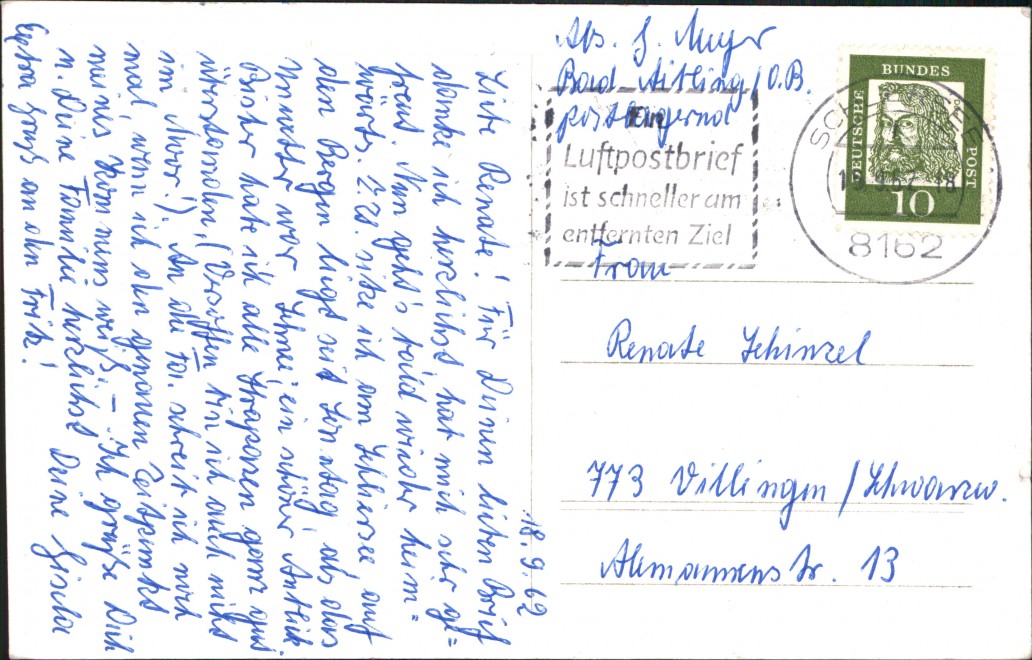 18.9.62
Liebe Renate! Für Deinen lieben Brief
danke ich herzlichst, hat mich sehr ge=
freut. Nun geht's bald wieder heim=
wärts. Z.Zt. sitze ich am Schliersee auf
den Bergen liegt seit Sonntag, als das
Unwetter war Schnee; ein schöner Anblick.
Bisher habe ich alle Strapazen ganz gut
überstanden, (Versoffen bin ich auch nicht
im Moor!). An die Fa. schreib ich noch
mal, wenn ich den genauen Zeitpunkt
meines Kommens weiß. – Ich grüße Dich
u. Deine Familie herzlichst Deine Gisela
Extra Gruß an den Fritz!
Abs. G. Meyer
Bad Aibling/O.B.
postlagernd
Ein
Luftpostbrief
ist schneller am
entfernten Ziel
DEUTSCHE BUNDESPOST
10
8162
Frau
Renate Schinzel
773 Villingen/Schwarzw.
Alemannenstr. 13